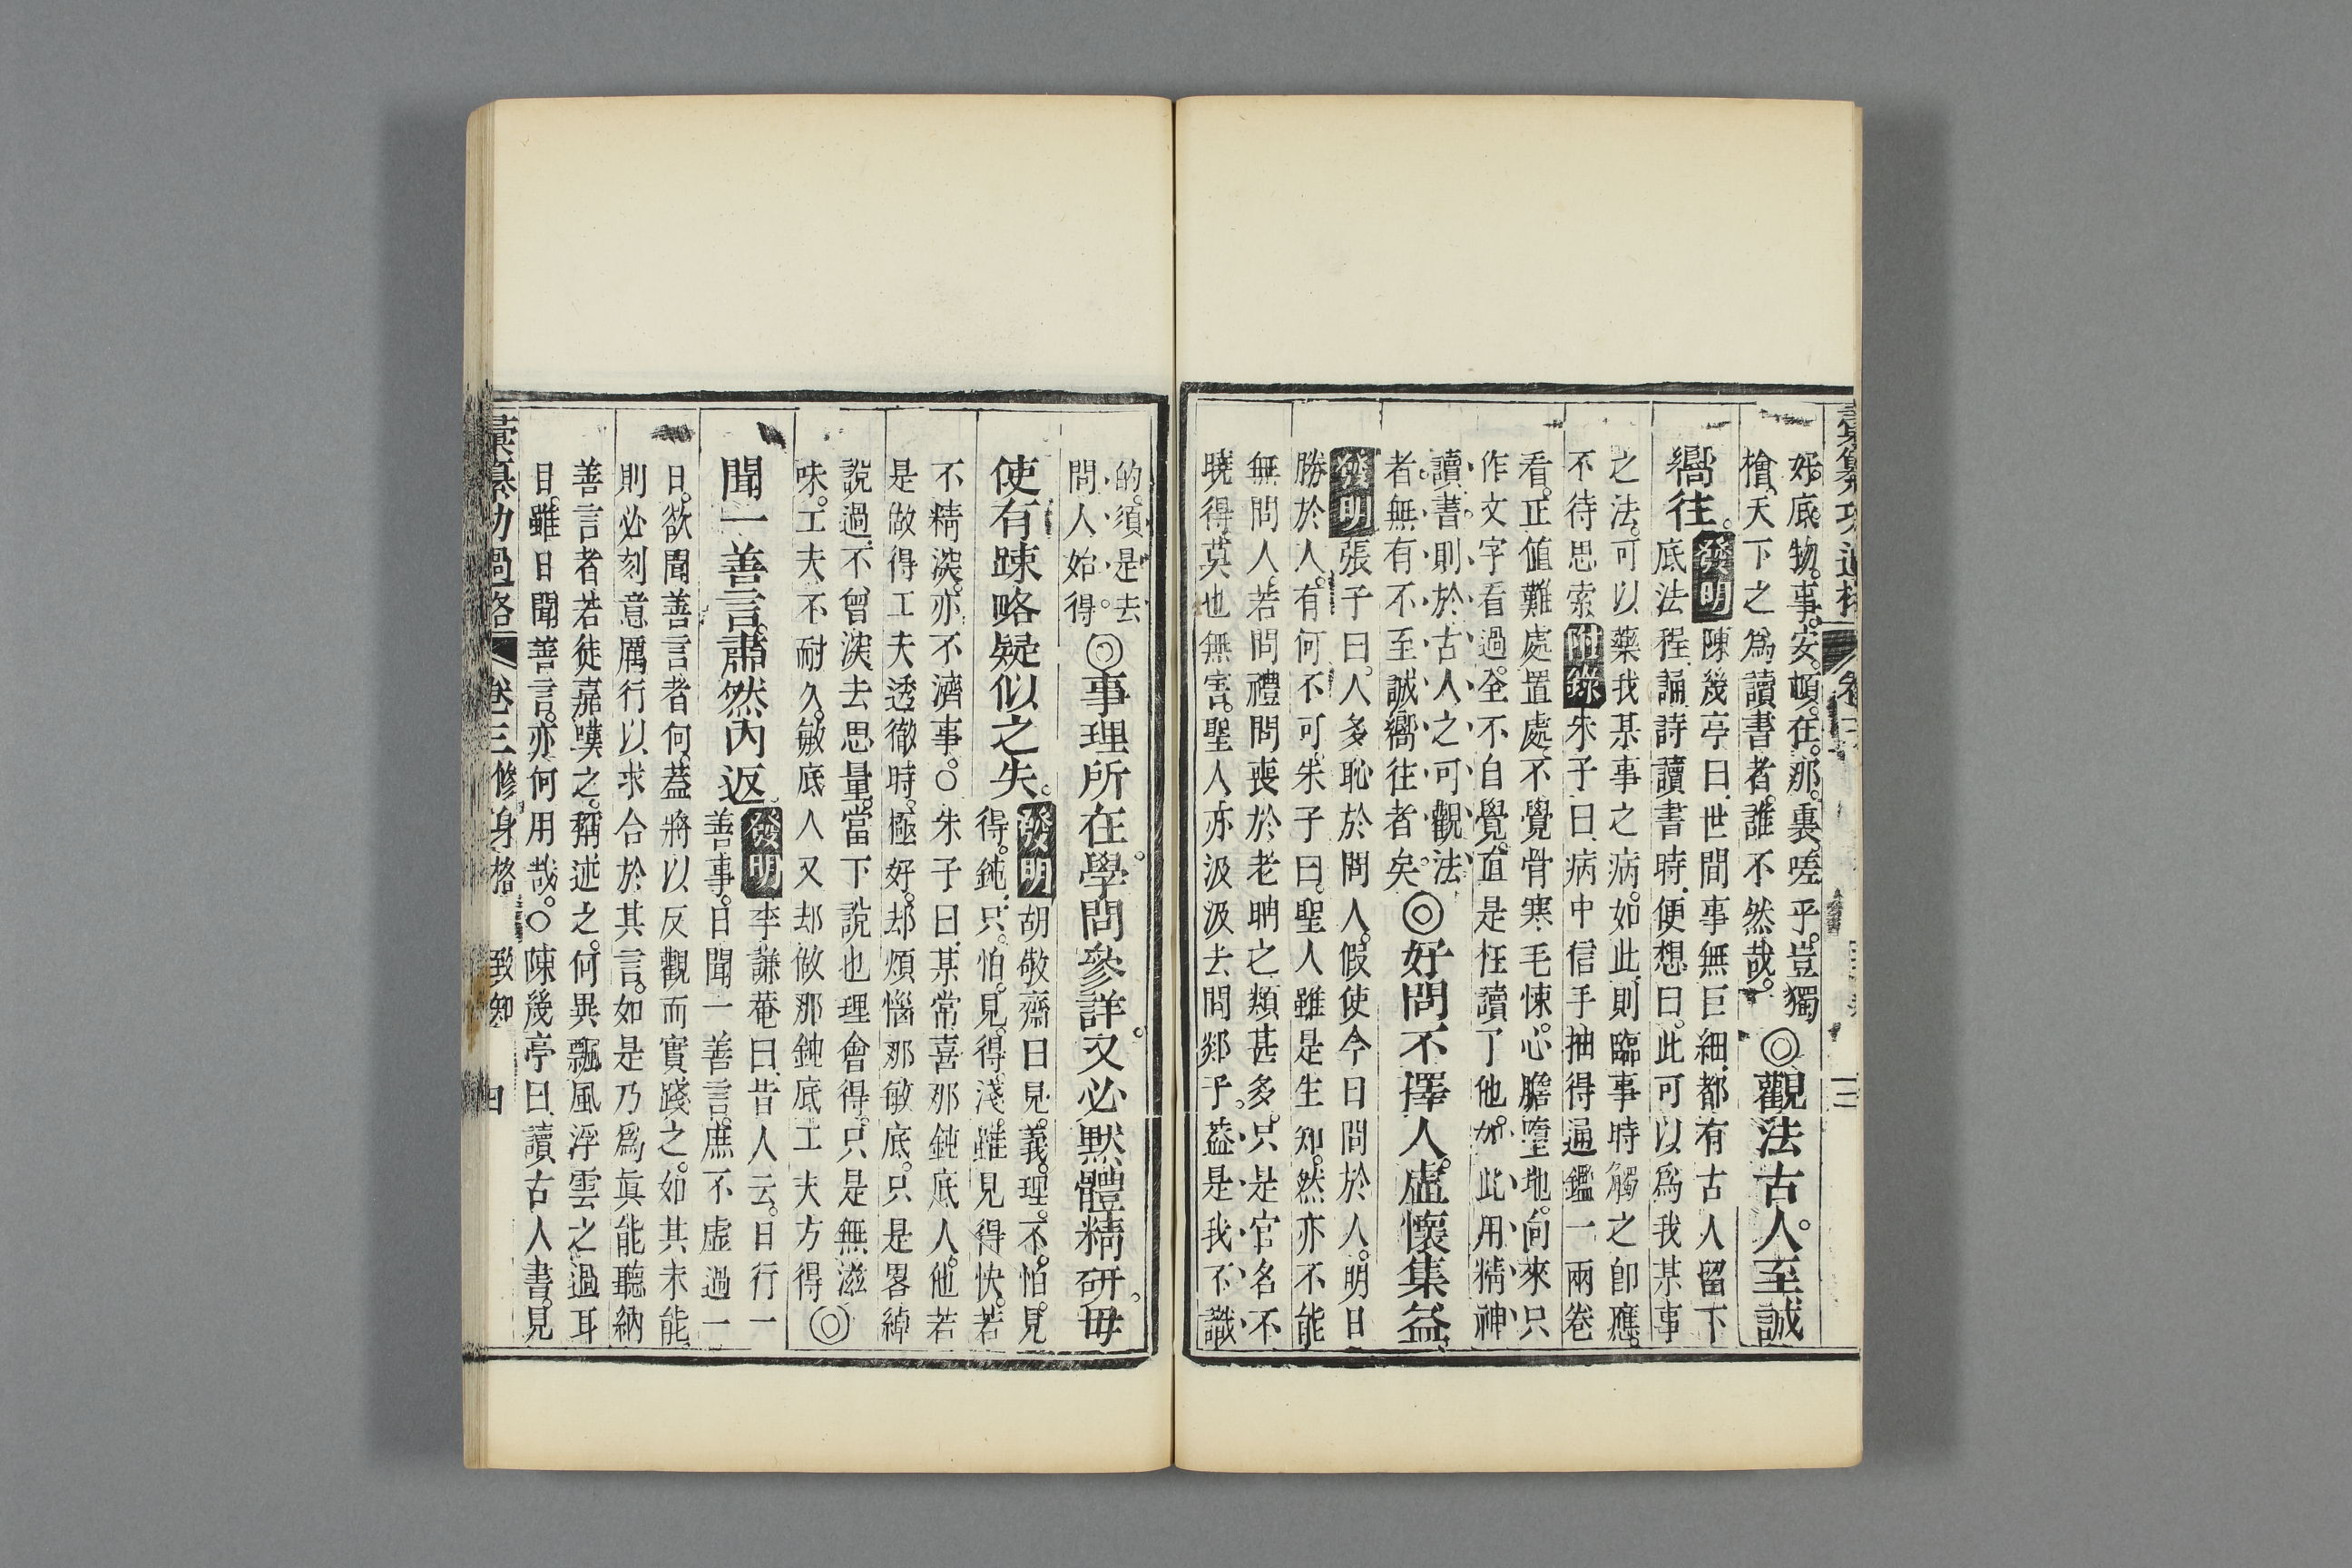 彙纂功過格
卷三
三
好。底。物。事。安。頓。在。那。裏。嗟乎。豈獨
檜。天下之爲讀書者。誰不然哉。
◎觀法古人。至誠
嚮往。
發明
陳幾亭曰。世間事無巨細。都有古人留下
底法程。誦詩讀書時。便想曰。此可以爲我某事
之法。可以藥我某事之病。如此。則臨事時觸之卽應。
不待思索
附錄
朱子曰。病中信手抽得通鑑一兩卷
看。正値難處置處。不覺骨寒毛悚。心膽墮地。向來只
作文字看過。全不自覺。直是枉讀了他。如此用精神
讀書。則於古人之可觀法
者無有不至誠嚮往者矣。
◎好問不擇人。虛懷集益。
發明
張子曰。人多恥於問人。假使今日問於人。明日
勝於人。有何不可。朱子曰。聖人雖是生知。然亦不能
無問人。若問禮問喪於老聃之類甚多。只是官名不
曉得。莫也無害。聖人亦汲汲去問郯子。葢是我不識
的。須是去
問人始得。
◎事理所在。學問參詳。又必默體精研。毋
使有踈略疑似之失。
發明
胡敬齋曰。見。義。理。不。怕。見
得。鈍。只。怕。見。得。淺。雖見得快。若
不精深。亦不濟事。○朱子曰。某常喜那鈍底人。他若
是做得工夫透徹時。極好。却煩惱那敏底。只是畧綽
說過。不曾深去思量。當下說也理會得。只是無滋
味。工夫不耐久。敏底人又却做那鈍底工夫方得
◎
聞一善言。肅然內返。
發明
李謙菴曰。昔人云。日行一
善事。日聞一善言。庶不虛過一
日。欲聞善言者何。葢將以反觀而實踐之。如其未能
則必刻意厲行以求合於其言。如是乃爲眞能聽納
善言者。若徒嘉嘆之。稱述之。何異飄風浮雲之過耳
目。雖日聞善言。亦何用哉。○陳幾亭曰。讀古人書。見
彙纂功過格
卷三修身格
致知
四